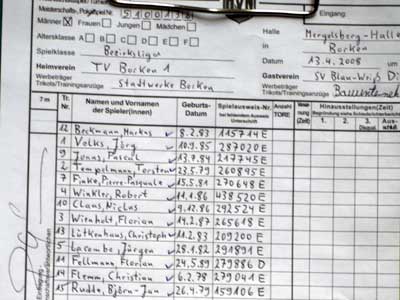 HVNI
Meisterschafts-, Pokalspiel Nr. 510013
Eingang:
Männer ☒ Frauen ☐ Jungen ☐ Mädchen ☐
Halle Mergelsberg-Halle
Altersklasse A ☐ B ☐ C ☐ D ☐ E ☐ F ☐
in Borken
Spielklasse Bezirksliga
Datum 13.4.2008 um
Heimverein TV Borken 1
Gastverein SV Blau-Weiß Di
Werbeträger Trikots/Trainingsanzüge Stadtwerke Borken
Werbeträger Trikots/Trainingsanzüge
7 m Tr. Nr. Namen und Vornamen der Spieler(innen) Geburts-Datum Spielausweis-Nr. bei fehlendem Ausweis Unterschrift Anzahl TORE Verwarnung (Zeit) Hinausstellungen (Zeit) Begründung siehe 1. 2. 3. Disqual.
12 Beckmann, Markus 8.2.83 115714 E
1 Volks, Jörg 10.9.85 287020 E
9 Jonas, Pascal 13.7.84 217745 E
2 Tempelmann, Torsten 23.5.79 260895 E
7 Finke, Pierre-Pasquale 15.5.81 270648 E
4 Winkler, Robert 11.1.86 438520 E
10 Claus, Niclas 9.12.86 292524 E
3 Wienholt, Florian 14.2.87 265618 E
13 Lütkenhaus, Christoph 11.2.83 209200 E
5 Lacombe, Jürgen 28.1.82 291891 E
11 Fellmann, Florian 24.5.89 279886 D
14 Flemm, Christian 6.2.78 279041 E
15 Rudde, Björn-Jan 26.4.79 159106 E